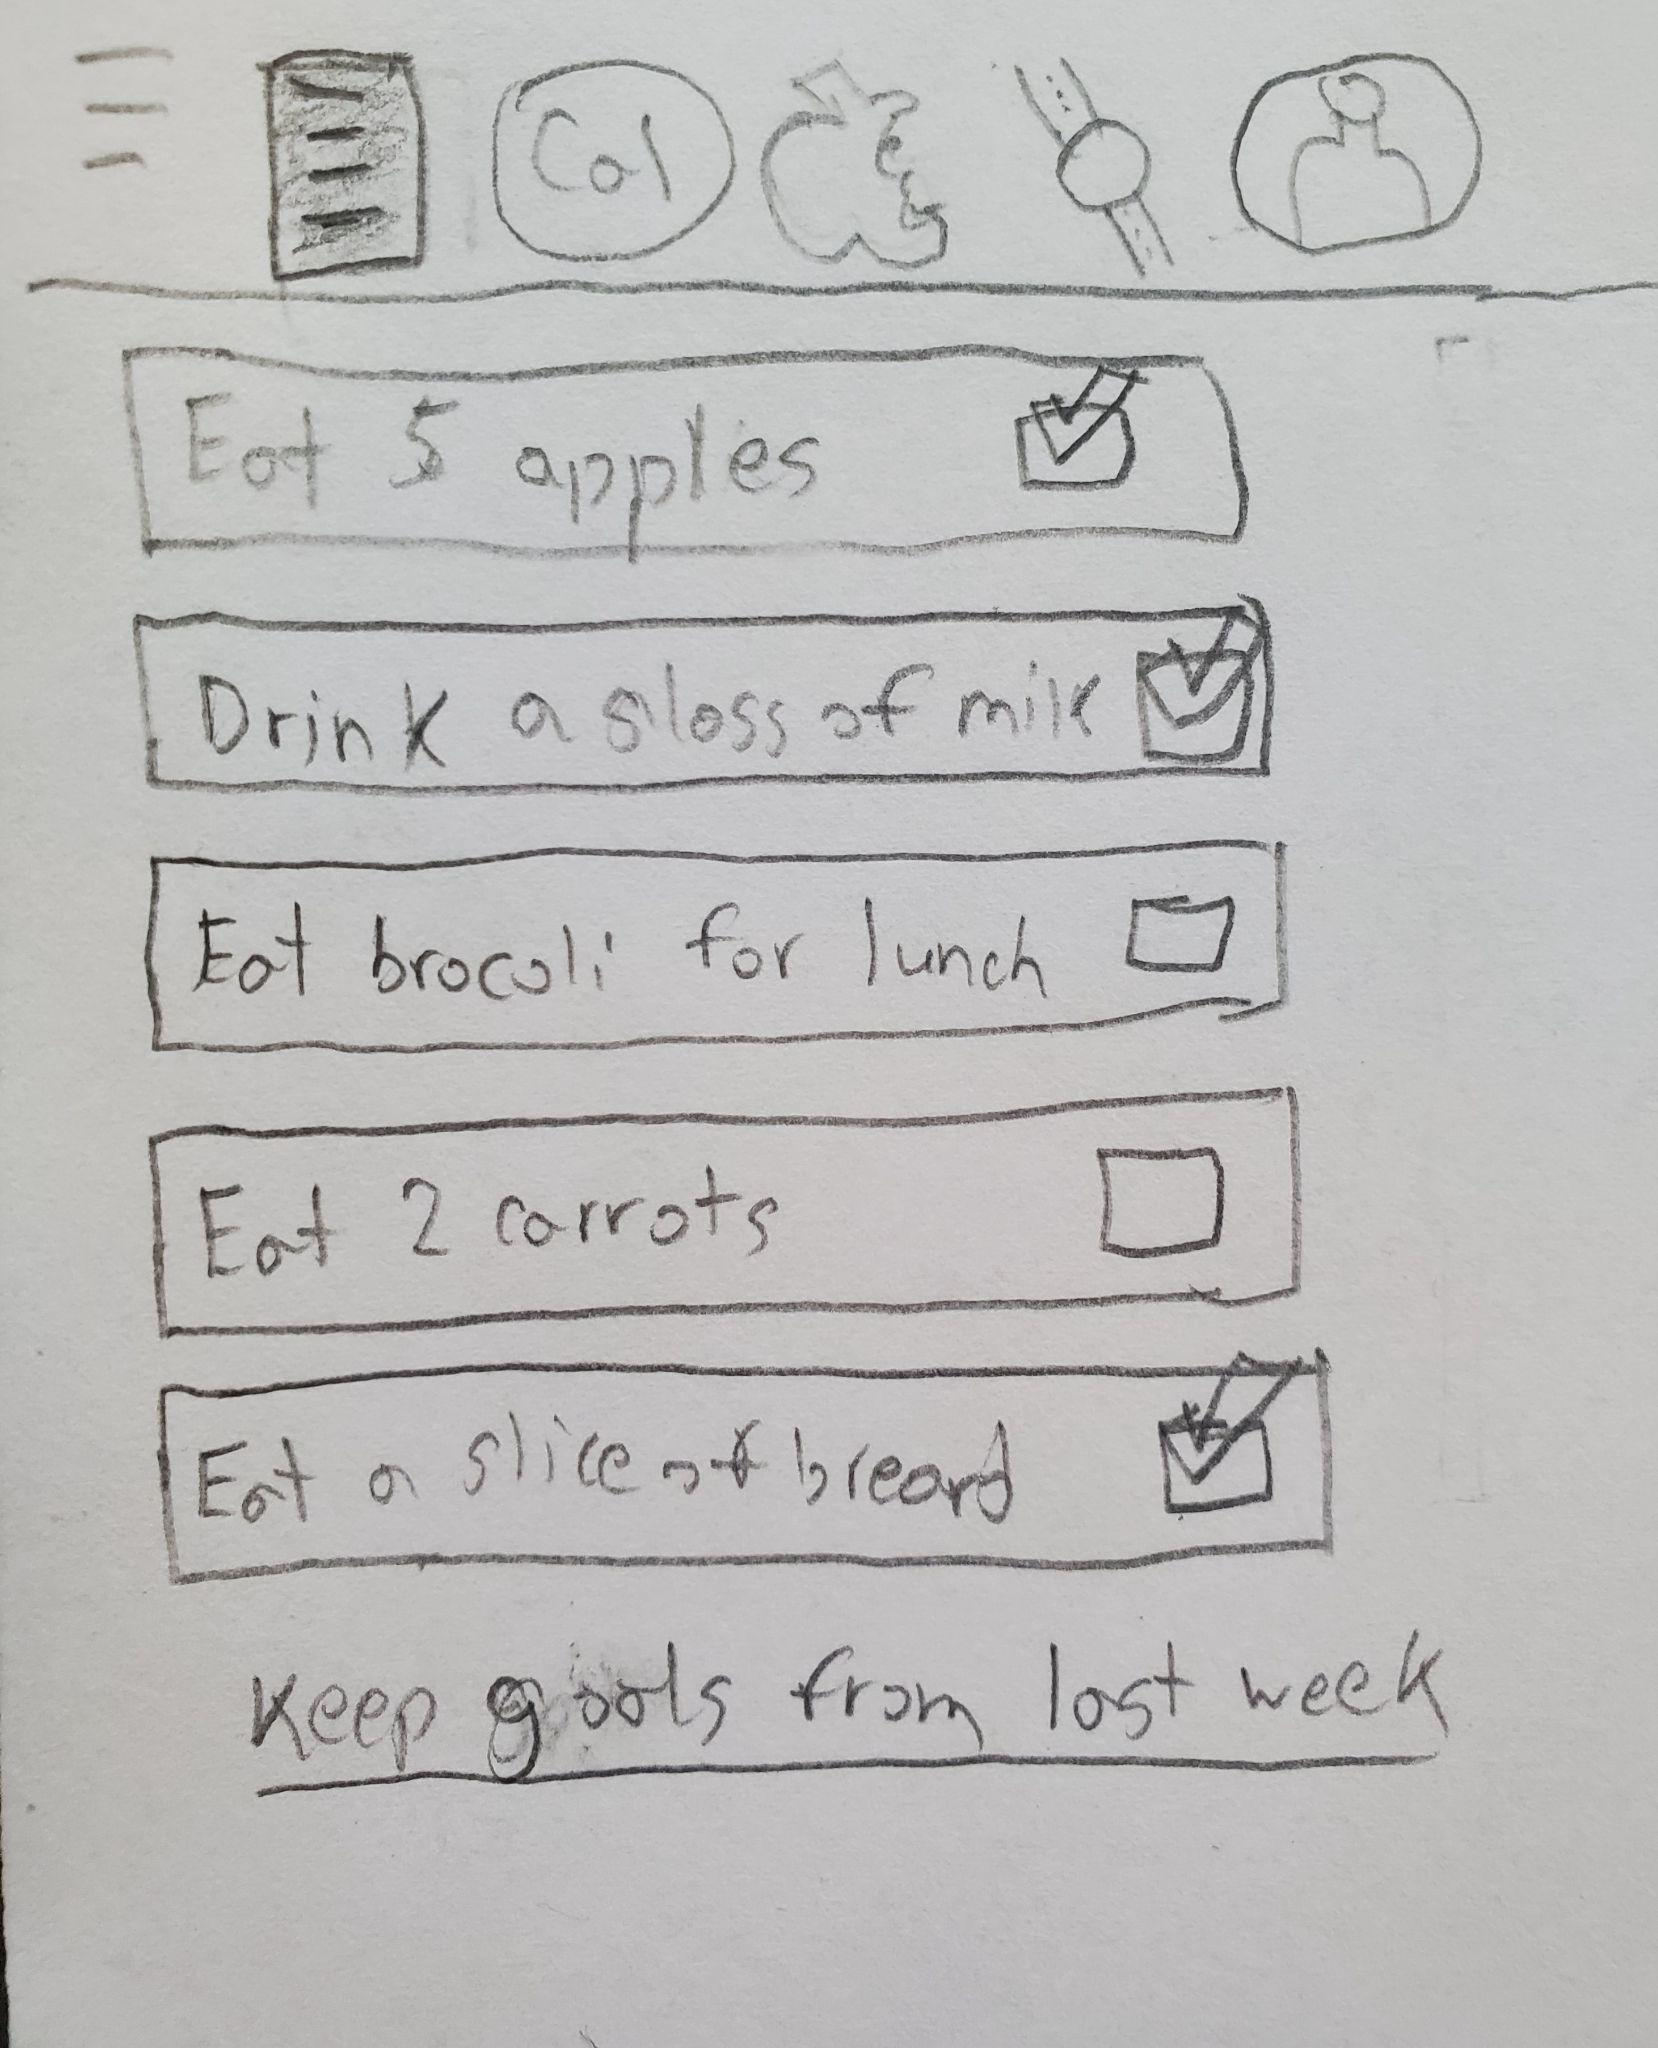 Cal
Eat 5 apples
Drink a glass of milk
Eat brocoli for lunch
Eat 2 carrots
Eat a slice of breard
Keep gools from last week